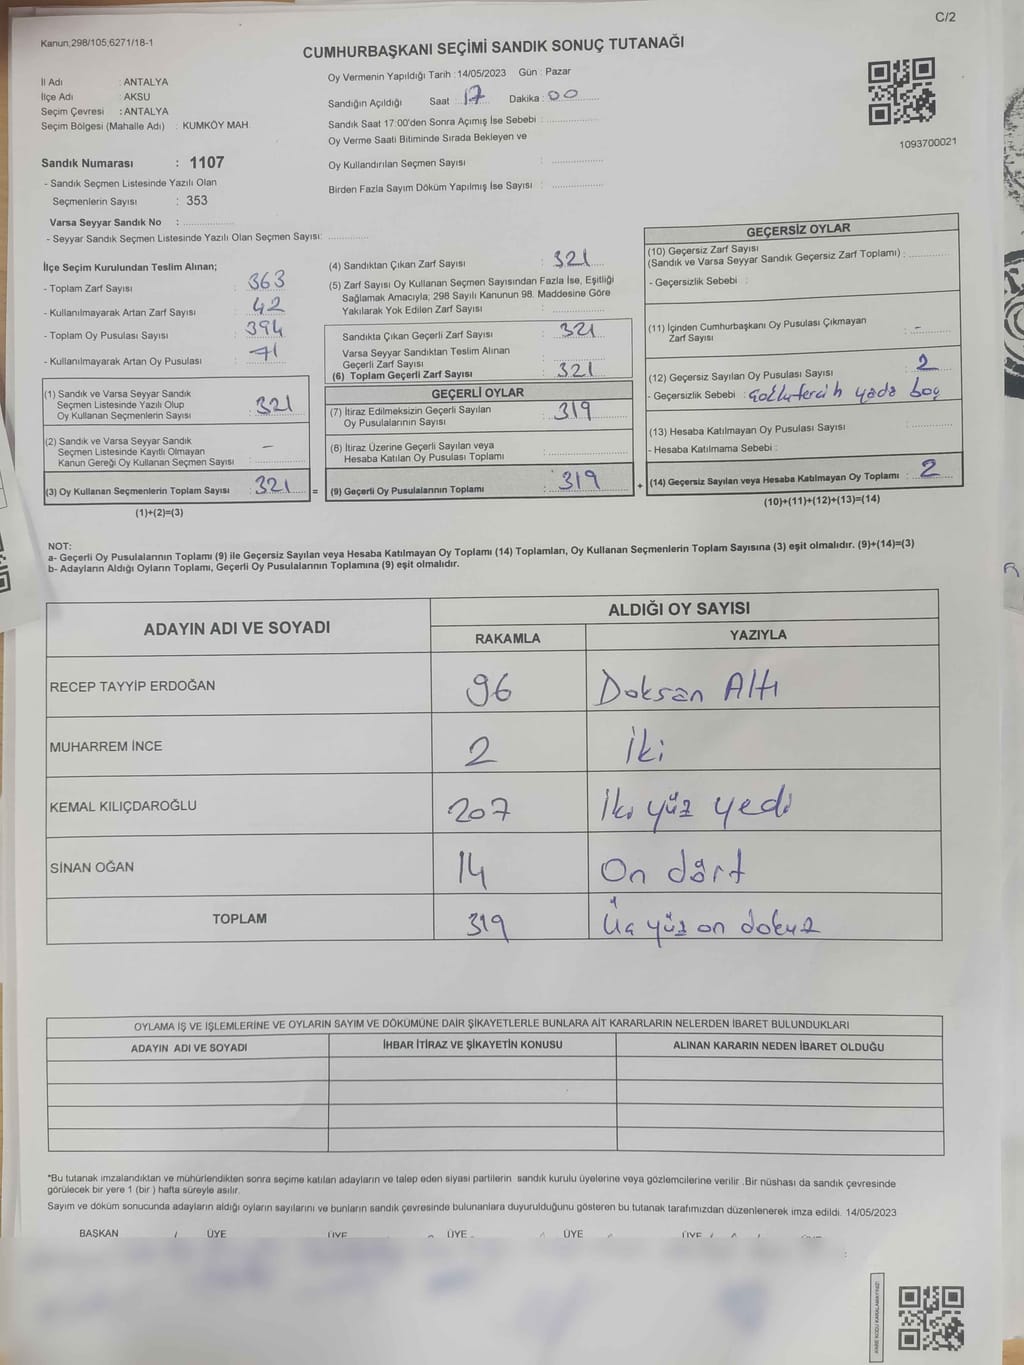 C/2
Kanun;298/105;6271/18-1
CUMHURBAŞKANI SEÇİMİ SANDIK SONUÇ TUTANAĞI
İl Adı : ANTALYA
İlçe Adı : AKSU
Seçim Çevresi : ANTALYA
Seçim Bölgesi (Mahalle Adı) : KUMKÖY MAH.
Oy Vermenin Yapıldığı Tarih : 14/05/2023 Gün : Pazar
Sandığın Açıldığı Saat : 17 Dakika : 00
Sandık Saat 17:00'den Sonra Açımış İse Sebebi :
Oy Verme Saati Bitiminde Sırada Bekleyen ve
Oy Kullandırılan Seçmen Sayısı :
Birden Fazla Sayım Döküm Yapılmış İse Sayısı :
1093700021
Sandık Numarası : 1107
- Sandık Seçmen Listesinde Yazılı Olan
Seçmenlerin Sayısı : 353
Varsa Seyyar Sandık No :
- Seyyar Sandık Seçmen Listesinde Yazılı Olan Seçmen Sayısı:
İlçe Seçim Kurulundan Teslim Alınan;
- Toplam Zarf Sayısı : 363
- Kullanılmayarak Artan Zarf Sayısı : 42
- Toplam Oy Pusulası Sayısı : 394
- Kullanılmayarak Artan Oy Pusulası : 71
(1) Sandık ve Varsa Seyyar Sandık
Seçmen Listesinde Yazılı Olup
Oy Kullanan Seçmenlerin Sayısı : 321
(2) Sandık ve Varsa Seyyar Sandık
Seçmen Listesinde Kayıtlı Olmayan
Kanun Gereği Oy Kullanan Seçmen Sayısı : -
(3) Oy Kullanan Seçmenlerin Toplam Sayısı : 321 =
(1)+(2)=(3)
(4) Sandıktan Çıkan Zarf Sayısı : 321
(5) Zarf Sayısı Oy Kullanan Seçmen Sayısından Fazla İse, Eşitliği
Sağlamak Amacıyla; 298 Sayılı Kanunun 98. Maddesine Göre
Yakılarak Yok Edilen Zarf Sayısı :
Sandıkta Çıkan Geçerli Zarf Sayısı : 321
Varsa Seyyar Sandıktan Teslim Alınan
Geçerli Zarf Sayısı :
(6) Toplam Geçerli Zarf Sayısı : 321
GEÇERLİ OYLAR
(7) İtiraz Edilmeksizin Geçerli Sayılan
Oy Pusulalarının Sayısı : 319
(8) İtiraz Üzerine Geçerli Sayılan veya
Hesaba Katılan Oy Pusulası Toplamı :
(9) Geçerli Oy Pusulalarının Toplamı : 319 +
GEÇERSİZ OYLAR
(10) Geçersiz Zarf Sayısı
(Sandık ve Varsa Seyyar Sandık Geçersiz Zarf Toplamı) :
- Geçersizlik Sebebi :
(11) İçinden Cumhurbaşkanı Oy Pusulası Çıkmayan
Zarf Sayısı : -
(12) Geçersiz Sayılan Oy Pusulası Sayısı : 2
- Geçersizlik Sebebi : yada boş
(13) Hesaba Katılmayan Oy Pusulası Sayısı :
- Hesaba Katılmama Sebebi :
(14) Geçersiz Sayılan veya Hesaba Katılmayan Oy Toplamı : 2
(10)+(11)+(12)+(13)=(14)
NOT:
a- Geçerli Oy Pusulalarının Toplamı (9) ile Geçersiz Sayılan veya Hesaba Katılmayan Oy Toplamı (14) Toplamları, Oy Kullanan Seçmenlerin Toplam Sayısına (3) eşit olmalıdır. (9)+(14)=(3)
b- Adayların Aldığı Oyların Toplamı, Geçerli Oy Pusulalarının Toplamına (9) eşit olmalıdır.
ADAYIN ADI VE SOYADI ALDIĞI OY SAYISI
RAKAMLA YAZIYLA
RECEP TAYYİP ERDOĞAN 96 Doksan Altı
MUHARREM İNCE 2 İki
KEMAL KILIÇDAROĞLU 207 İki yüz yedi
SİNAN OĞAN 14 On dört
TOPLAM 319 Üç yüz on dokuz
OYLAMA İŞ VE İŞLEMLERİNE VE OYLARIN SAYIM VE DÖKÜMÜNE DAİR ŞİKAYETLERLE BUNLARA AİT KARARLARIN NELERDEN İBARET BULUNDUKLARI
ADAYIN ADI VE SOYADI İHBAR İTİRAZ VE ŞİKAYETİN KONUSU ALINAN KARARIN NEDEN İBARET OLDUĞU
*Bu tutanak imzalandıktan ve mühürlendikten sonra seçime katılan adayların ve talep eden siyasi partilerin sandık kurulu üyelerine veya gözlemcilerine verilir .Bir nüshası da sandık çevresinde
görülecek bir yere 1 (bir ) hafta süreyle asılır.
Sayım ve döküm sonucunda adayların aldığı oyların sayılarını ve bunların sandık çevresinde bulunanlara duyurulduğunu gösteren bu tutanak tarafımızdan düzenlenerek imza edildi. 14/05/2023
BAŞKAN ÜYE ÜYE ÜYE ÜYE ÜYE